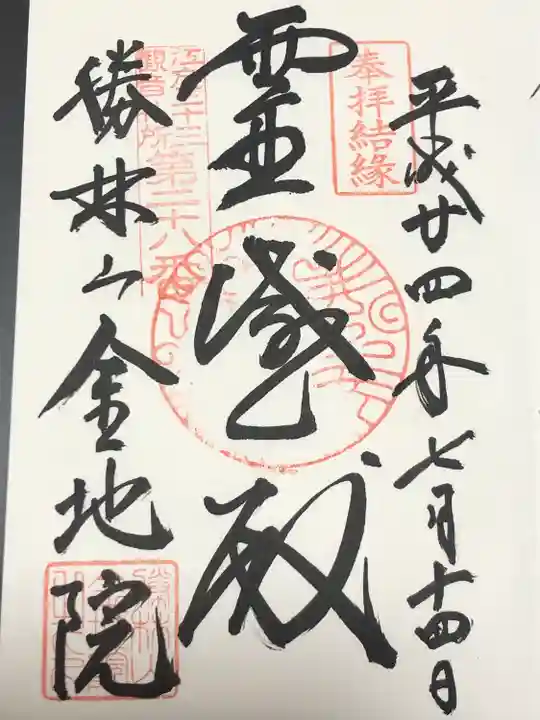 平成廿四年七月十四日
奉拝結縁
霊感殿
江戸三十三
観音札所
第二十八番
勝林山金地院